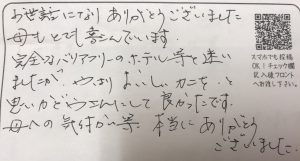 お世話になり ありがとうございました
母もとても喜んでいます。
完全なバリアフリーのホテル等と迷い
ましたが、やはり おいしい カニを、と
思い かどや さんにして 良かったです。
母への 気付かい等 本当に ありがとう
ございました。
スマホでも投稿
OK!チェック欄
記入後フロント
へお渡し下さい。